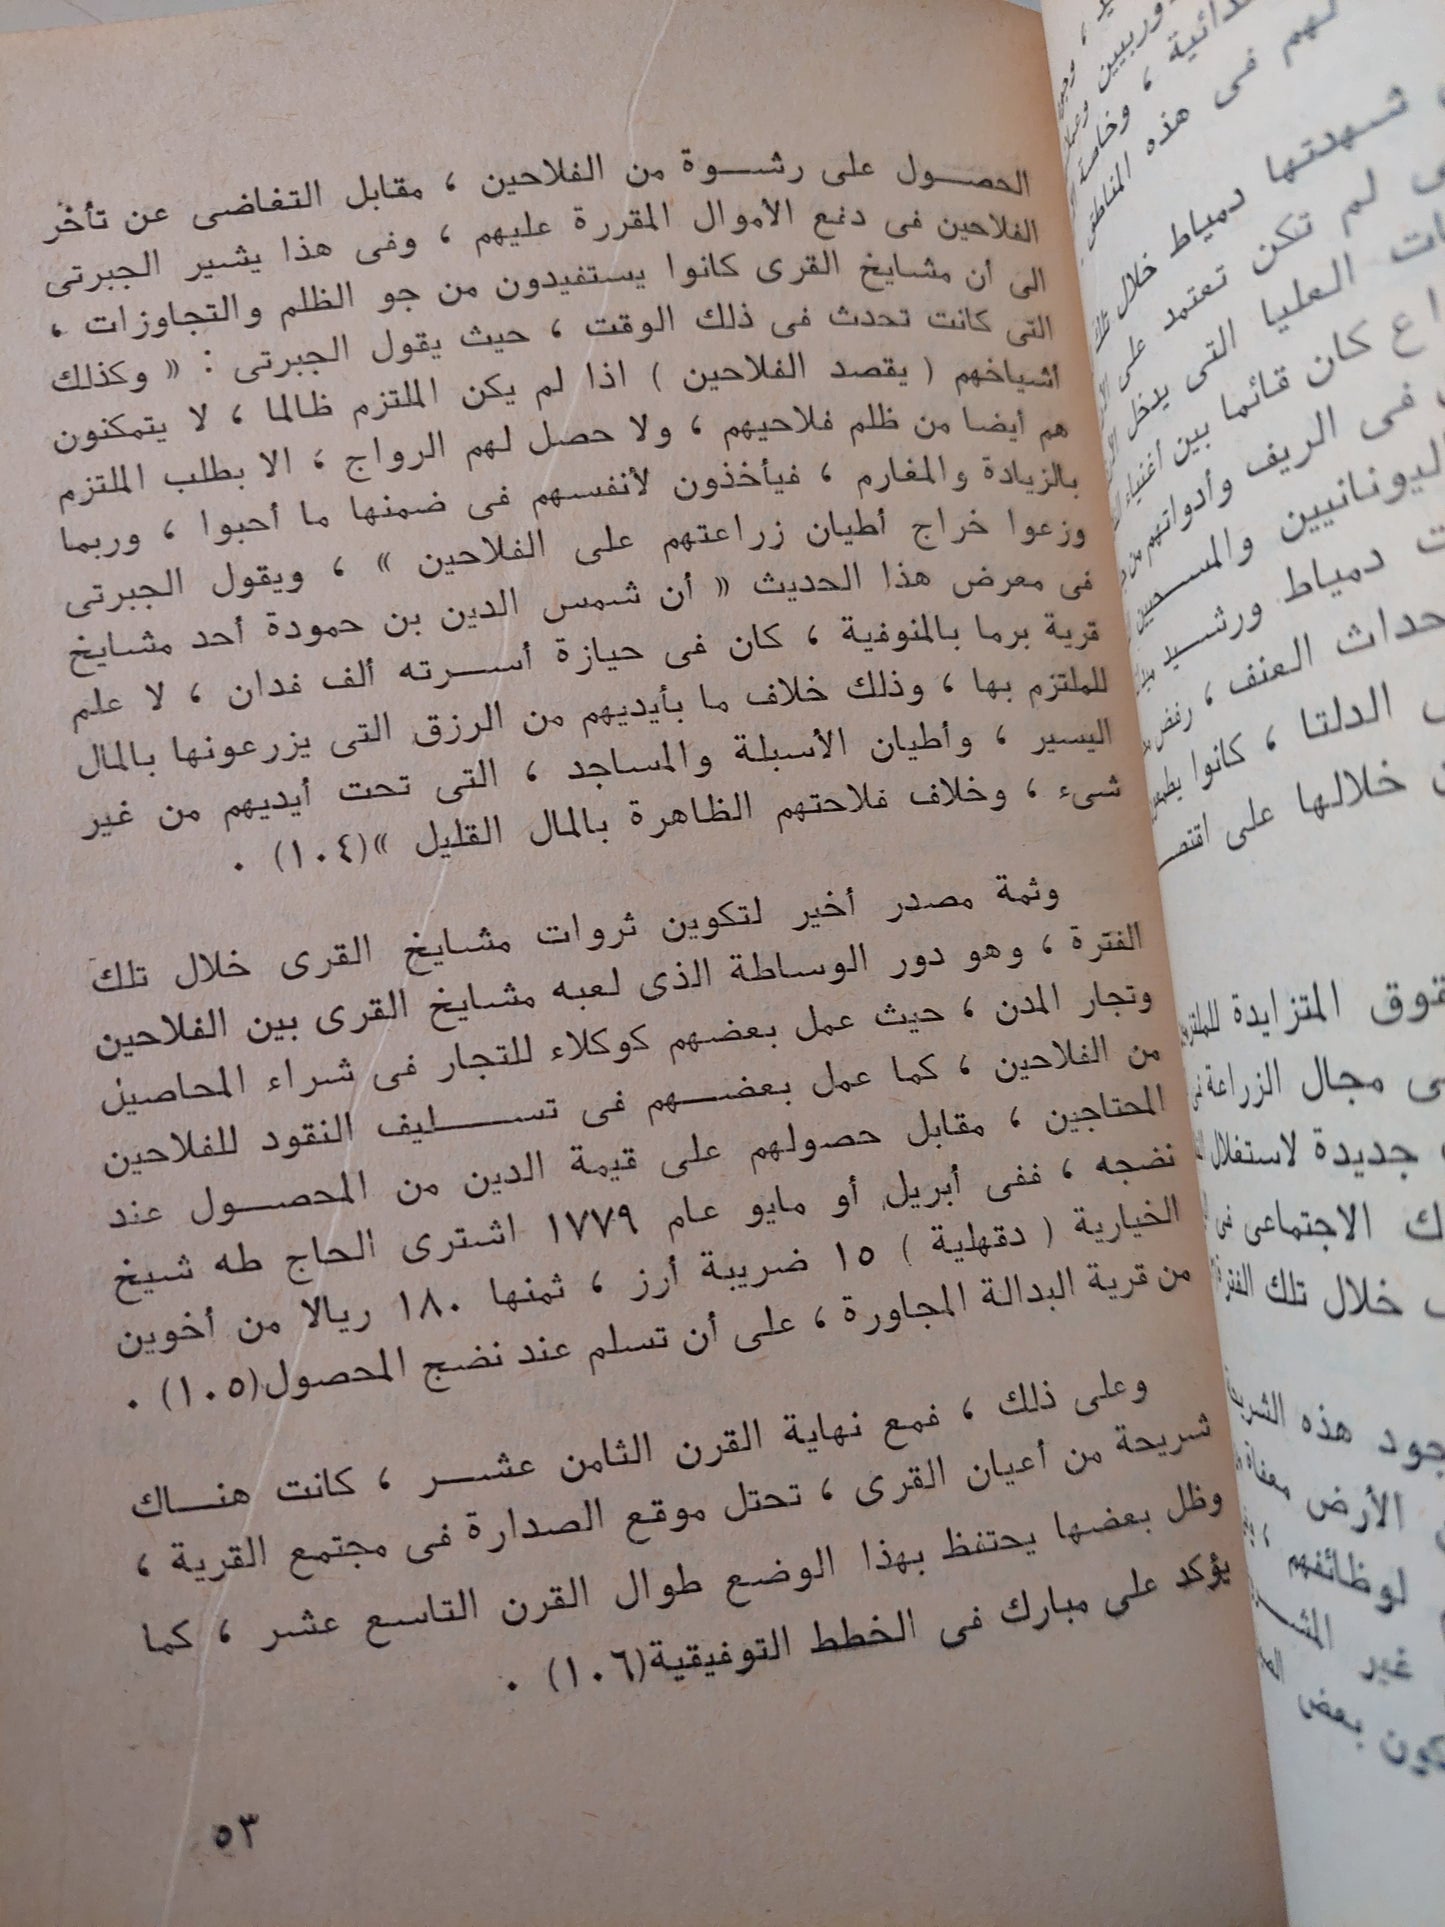 الحصول على رشوة من الفلاحين ، مقابل التفاضى عن تأخر
الفلاحين فى دفع الأموال المقررة عليهم ، وفى هذا يشير الجبرتى
الى أن مشايخ القرى كانوا يستفيدون من جو الظلم والتجاوزات ،
التى كانت تحدث فى ذلك الوقت ، حيث يقول الجبرتى : « وكذلك
أشياخهم ( يقصد الفلاحين ) اذا لم يكن الملتزم ظالما ، لا يتمكنون
هم أيضا من ظلم فلاحيهم ، ولا حصل لهم الرواج ، الا بطلب الملتزم
بالزيادة والمغارم ، فيأخذون لأنفسهم فى ضمنها ما أحبوا ، وربما
وزعوا خراج أطيان زراعتهم على الفلاحين » ، ويقول الجبرتى
فى معرض هذا الحديث « أن شمس الدين بن حمودة أحد مشايخ
قرية برما بالمنوفية ، كان فى حيازة أسرته ألف فدان ، لا علم
للملتزم بها ، وذلك خلاف ما بأيديهم من الرزق التى يزرعونها بالمال
اليسير ، وأطيان الأسبلة والمساجد ، التى تحت أيديهم من غير
شىء ، وخلاف فلاحتهم الظاهرة بالمال القليل »(١٠٤) .
وثمة مصدر أخير لتكوين ثروات مشايخ القرى خلال تلك
الفترة ، وهو دور الوساطة الذى لعبه مشايخ القرى بين الفلاحين
وتجار المدن ، حيث عمل بعضهم كوكلاء للتجار فى شراء المحاصيل
من الفلاحين ، كما عمل بعضهم فى تسليف النقود للفلاحين
المحتاجين ، مقابل حصولهم على قيمة الدين من المحصول عند
نضجه ، ففى أبريل أو مايو عام ١٧٧٩ اشترى الحاج طه شيخ
الخيارية ( دقهلية ) ١٥ ضريبة أرز ، ثمنها ١٨٠ ريالا من أخوين
من قرية البدالة المجاورة ، على أن تسلم عند نضج المحصول(١٠٥) .
وعلى ذلك ، فمع نهاية القرن الثامن عشر ، كانت هناك
شريحة من أعيان القرى ، تحتل موقع الصدارة فى مجتمع القرية ،
وظل بعضها يحتفظ بهذا الوضع طوال القرن التاسع عشر ، كما
يؤكد على مبارك فى الخطط التوفيقية(١٠٦) .
٥٣
لهم فى هذه المناطق
شهدتها دمياط خلال
لم تكن تعتمد على
العليا التى يدخل
كان قائما بين أغنياء
فى الريف وأدواتهم من
اليونانيين والمسيحيين
دمياط ورشيد
العنف ، رفض
الدلتا ، كانوا
خلالها على
المتزايدة
مجال الزراعة فى
جديدة لاستغلال
الاجتماعى فى
خلال تلك الفترة
هذه
الأرض
لوظائفهم
غير
بعض